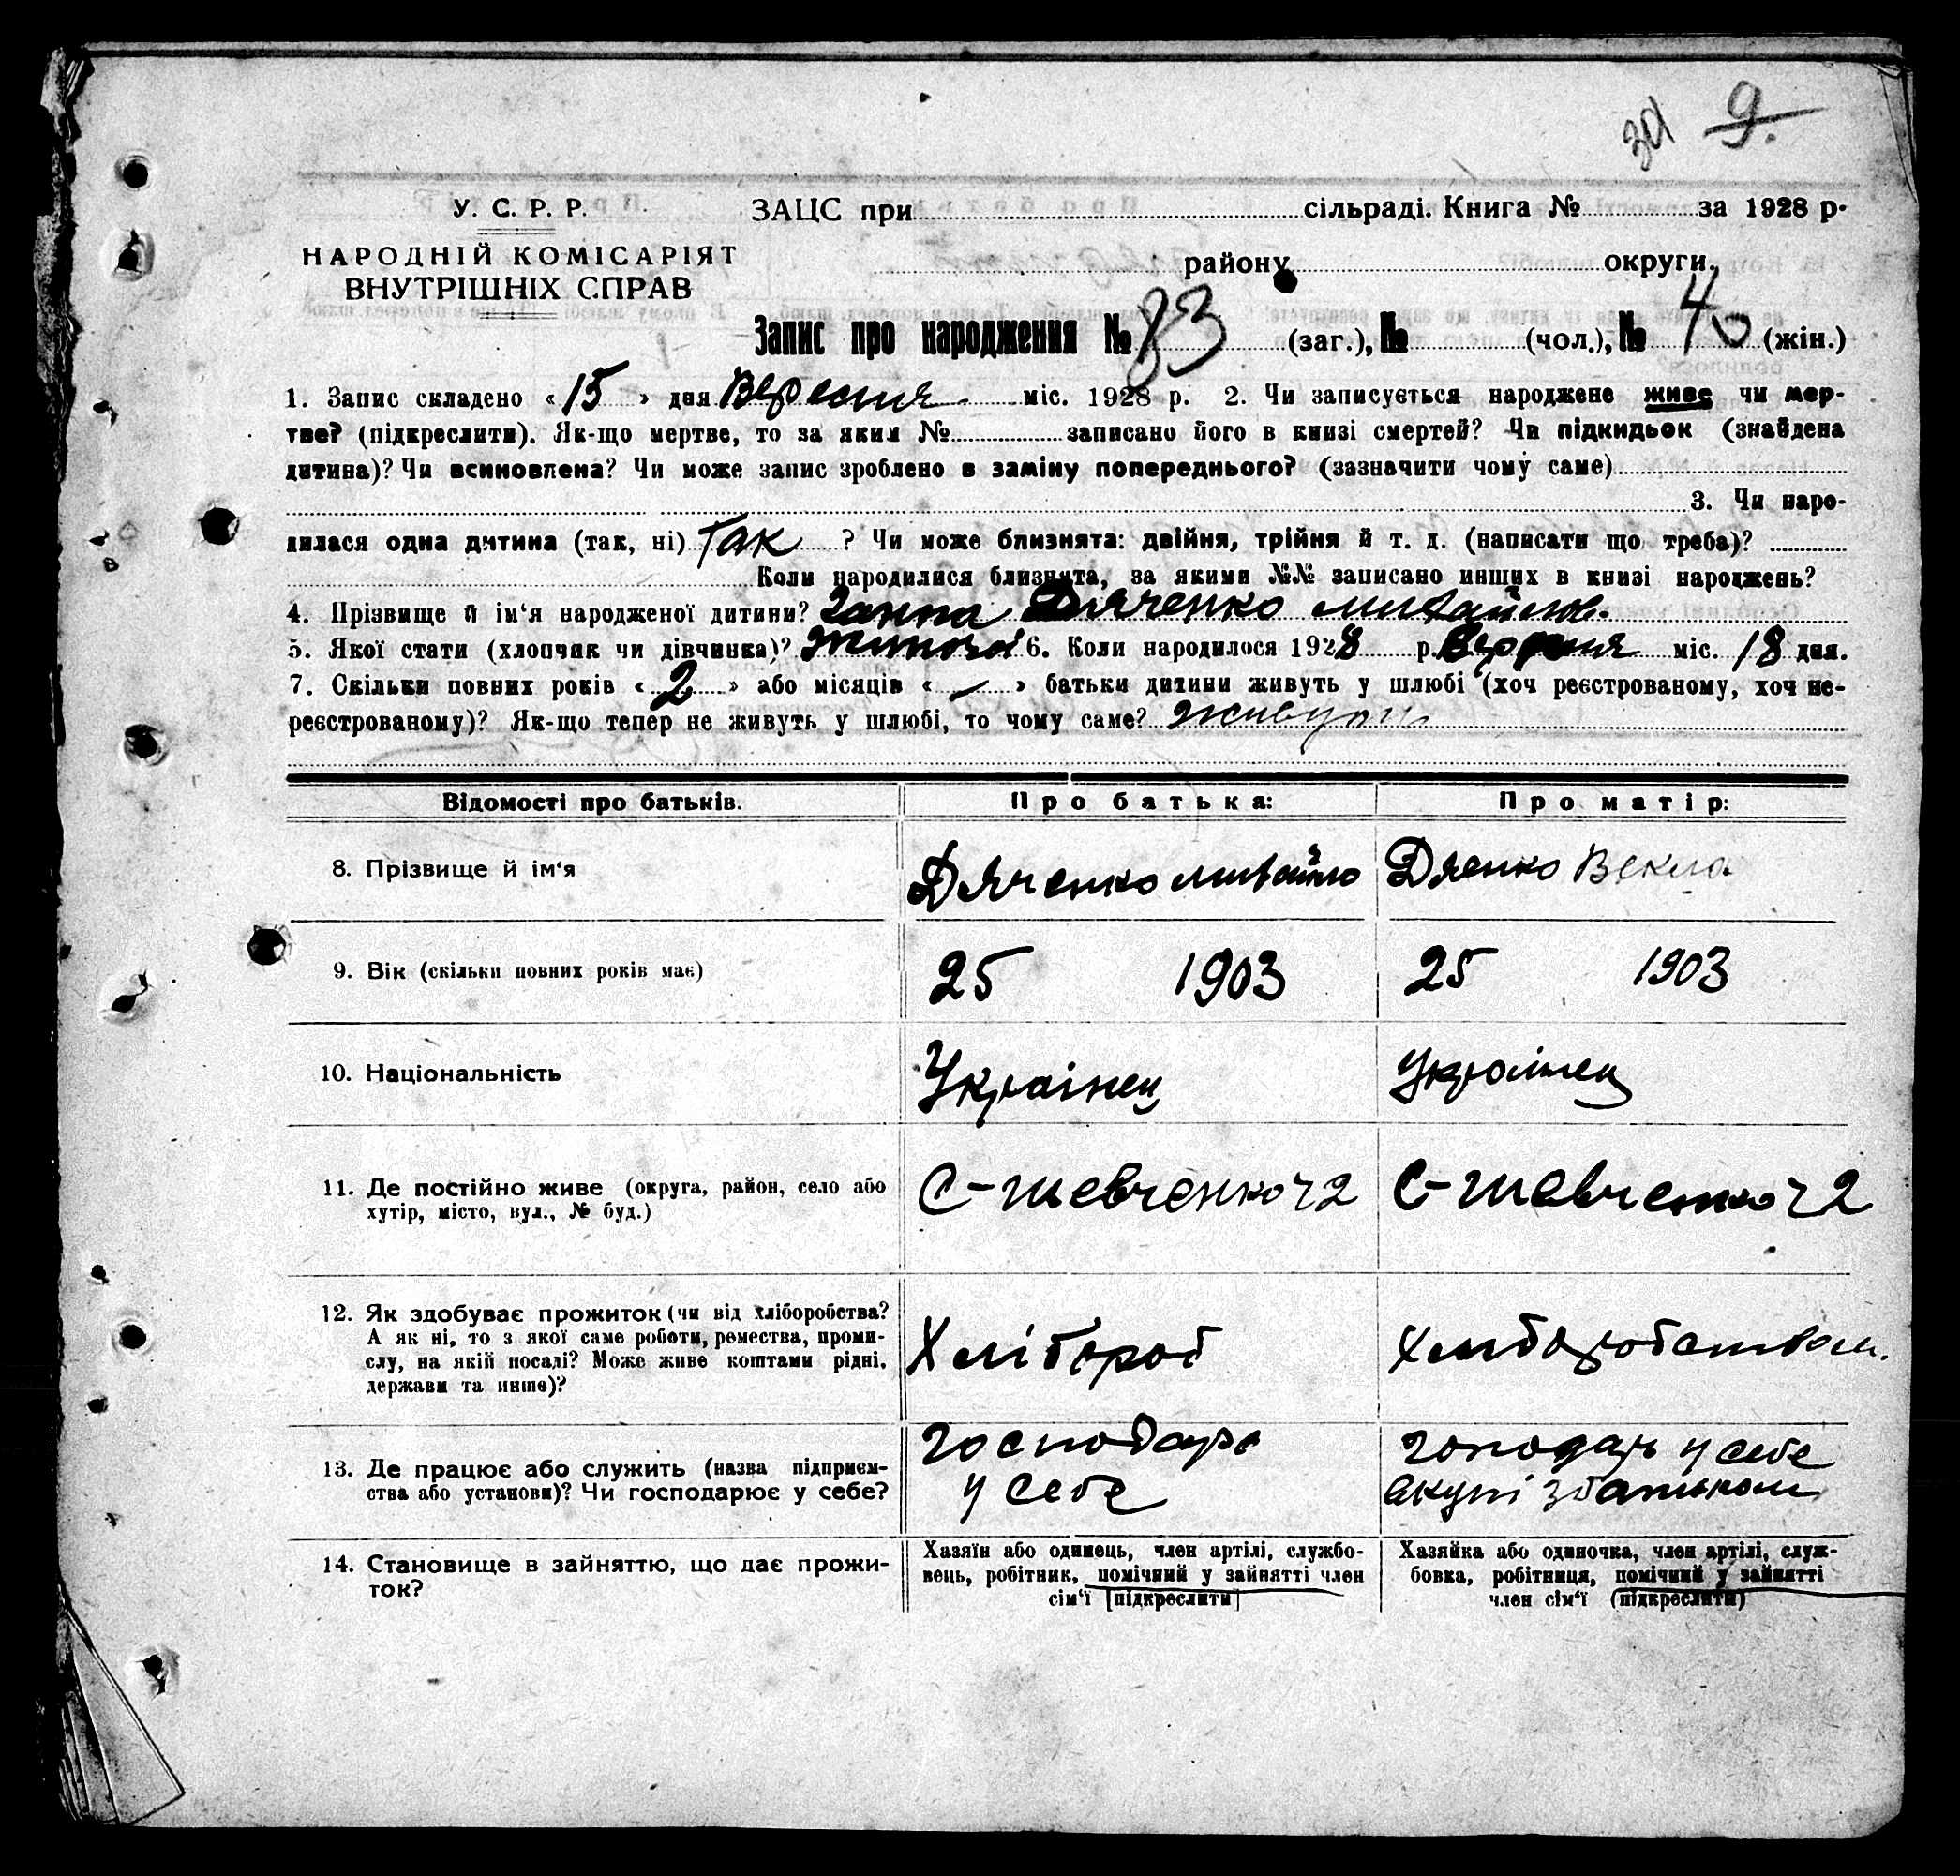 301 9.
У. С. Р. Р.
НАРОДНІЙ КОМІСАРІЯТ
ВНУТРІШНІХ СПРАВ
ЗАЦС при сільраді. Книга № за 1928 р.
району округи.
Запис про народження № 83 (заг.), № (чол.), № 40 (жін.)
1. Запис складено « 15 » дня Вересня міс. 1928 р. 2. Чи записується народжене живе чи мер-
тве? (підкреслити). Як-що мертве, то за яким № записано його в книзі смертей? Чи підкидьок (знайдена
дитина)? Чи всиновлена? Чи може запис зроблено в заміну попереднього? (зазначити чому саме)
3. Чи наро-
дилася одна дитина (так, ні) Так ? Чи може близнята: двійня, трійня й т. д. (написати що треба)?
Коли народилися близнята, за якими №№ записано инших в книзі народжень?
4. Прізвище й ім‘я народженої дитини? Ганна Дяченко Михайлов.
5. Якої стати (хлопчик чи дівчинка)? 6. Коли народилося 1928 р. Вересня міс. 18 дня.
7. Скільки повних років « 2 » або місяців « — » батьки дитини живуть у шлюбі (хоч реєстрованому, хоч не-
реєстрованому)? Як-що тепер не живуть у шлюбі, то чому саме? живуть
Відомості про батьків. Про батька: Про матір:
8. Прізвище й ім‘я Дяченко Михайло Дяенко Векла
9. Вік (скільки повних років має) 25 1903 25 1903
10. Національність Українец Українец
11. Де постійно живе (округа, район, село або
хутір, місто, вул., № буд.) С-Шевченко ч 2 С-Шевченко ч 2
12. Як здобуває прожиток (чи від хліборобства?
А як ні, то з якої саме роботи, ремества, проми-
слу, на якій посаді? Може живе коштами рідні,
держави та инше)? Хлібороб Хліборобством.
13. Де працює або служить (назва підприєм-
ства або установи)? Чи господарює у себе?
господарь
у себе
гоподарь у себе
вкупі з батьком
14. Становище в зайняттю, що дає прожи-
ток?
Хазяїн або одинець, член артілі, службо-
вець, робітник, помічний у зайнятті член
сім‘ї [підкреслити]
Хазяйка або одиночка, член артілі, служ-
бовка, робітниця, помічний у зайнятті
член сім‘ї (підкреслити)